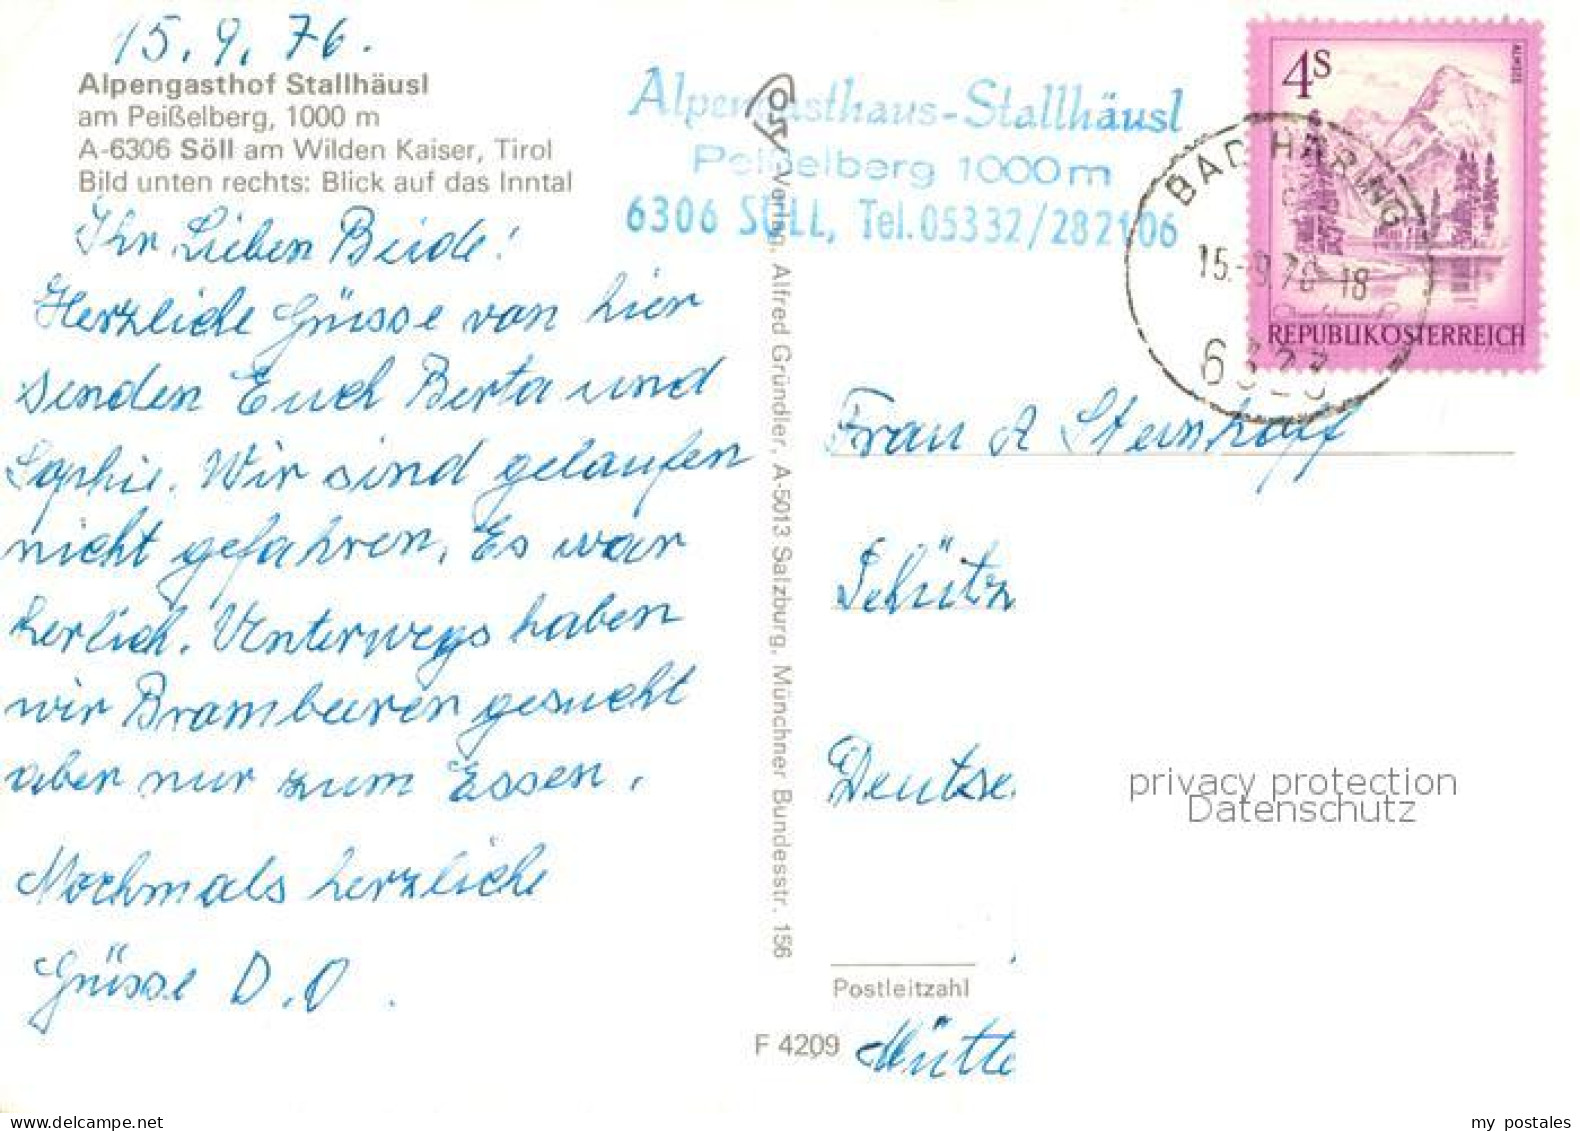 15. 9. 76.
Alpengasthof Stallhäusl
am Peißelberg, 1000 m
A-6306 Söll am Wilden Kaiser, Tirol
Bild unten rechts: Blick auf das Inntal
Ihr Lieben Beide!
Herzliche Grüsse von hier
senden Euch Berta und
Sophie. Wir sind gelaufen
nicht gefahren. Es war
herlich. Unterwegs haben
wir Brambeeren gesucht
aber nur zum Essen.
Nochmals herzliche
Grüsse D. O.
Cosy Verlag, Alfred Gründler, A-5013 Salzburg, Münchner Bundesstr. 156
F 4209
Alpengasthaus-Stallhäusl
Peißelberg 1000m
6306 SÖLL, Tel. 05332/282106
4S
ALMSEE
REPUBLIK ÖSTERREICH
BAD HÄRING
15.-9.76-18
6323
Frau A Steinhoff
Schütz
Deutsc
privacy protection
Datenschutz
Postleitzahl
Hütte
my postales